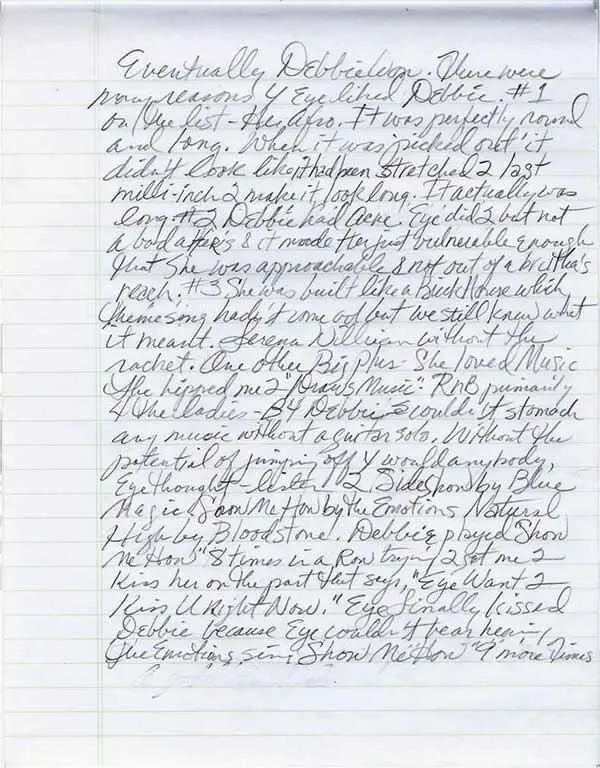 Eventually Debbie won. There were
many reasons Y Eye liked Debbie. #1
on the list - Her Afro. It was perfectly round
and long. When it was picked out it
didn't look like it had been stretched 2 last
milli-inch 2 make it look long. It actually was
long. #2 Debbie had Acne. Eye did 2 but not
a bad as Hers & it made Her just vulnerable enough
that She was approachable & not out of a brutha's
reach. #3 She was built like a Brick House which
theme song hadn't come out but we still knew what
it meant. Serena William without the
racket. One other Big Plus - She loved Music
She hipped me 2 " Music". RnB primarily
4 the ladies - B4 Debbie couldn't stomach
any music without a guitar solo. Without the
potential of jumping off Y would anybody,
Eye thought - listen 2 Sideshow by Blue
Magic, Show Me How by the Emotions Natural
High by Bloodstone. Debbie played Show
Me How" 8 times in a Row tryin' 2 get me 2
Kiss her on the part that says, "Eye Want 2
Kiss U Right Now." Eye finally kissed
Debbie because Eye couldn't bear hearin'
the Emotions sing Show Me How" 9 more Times